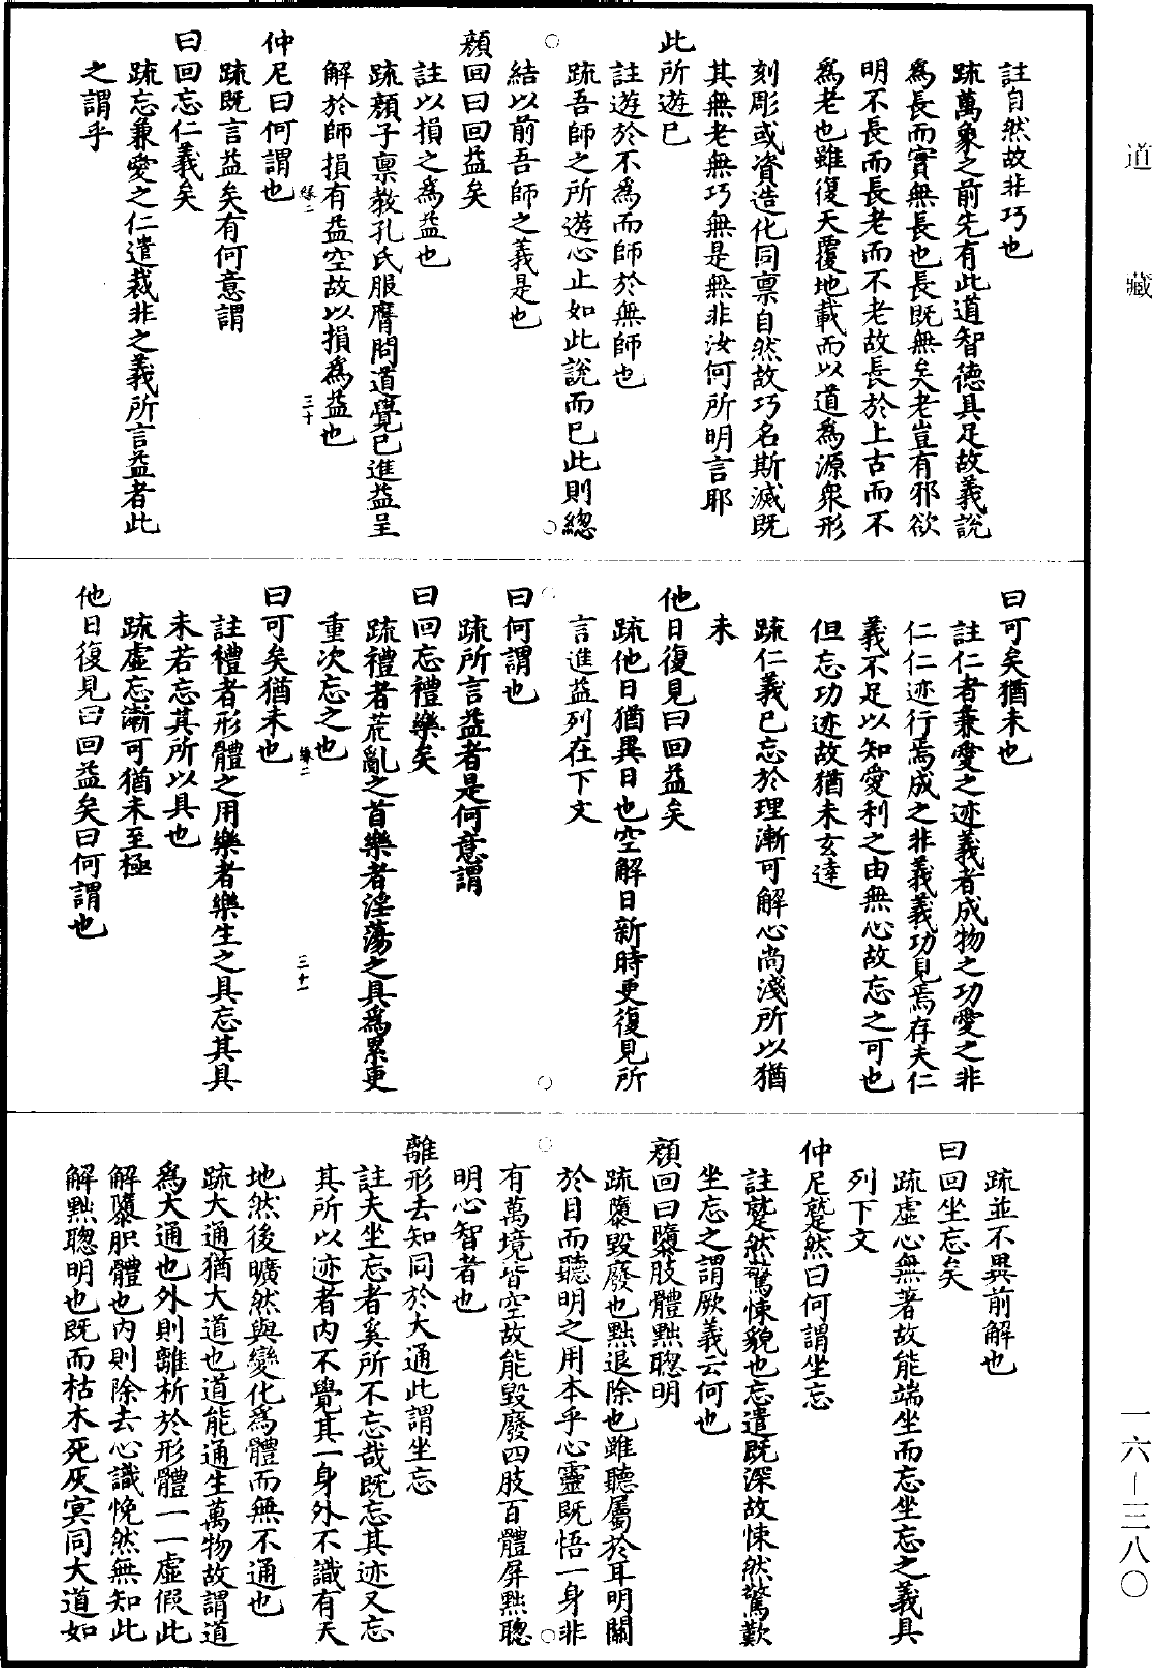 道藏
註自然故非巧也
疏萬象之前先有此道智德具足故義說
爲長而實無長也長既無矣老豈有邪欲
明不長而長老而不老故長於上古而不
爲老也雖復天覆地載而以道爲源衆形
刻彫或資造化同禀自然故巧名斯滅既
其無老無巧無是無非汝何所明言耶
此所遊已
註遊於不爲而師於無師也
疏吾師之所遊心止如此說而已此則總
結以前吾師之義是也
顏回曰回益矣
註以損之爲益也
疏顏子禀教孔氏服膺問道覺已進益呈
解於師損有益空故以損爲益也
仲尼曰何謂也
三十
疏既言益矣有何意謂
曰回忘仁義矣
疏忘兼愛之仁遣裁非之義所言益者此
之謂乎
曰可矣猶未也
註仁者兼愛之迹義者成物之功愛之非
仁仁迹行焉成之非義義功見焉存夫仁
義不足以知愛利之由無心故忘之可也
但忘功迹故猶未玄達
疏仁義已忘於理漸可解心尚淺所以猶
未
他日復見曰回益矣
疏他日猶異日也空解日新時更復見所
言進益列在下文
曰何謂也
疏所言益者是何意謂
曰回忘禮樂矣
疏禮者荒亂之首樂者淫蕩之具爲累更
重次忘之也
曰可矣猶未也
三十一
註禮者形體之用樂者樂生之具忘其具
未若忘其所以具也
疏虛忘漸可猶未至極
他日復見曰回益矣曰何謂也
疏並不異前解也
曰回坐忘矣
疏虛心無著故能端坐而忘坐忘之義具
列下文
仲尼蹵然曰何謂坐忘
註蹵然驚悚貌也忘遣既深故悚然驚歎
坐忘之謂厥義云何也
顏回曰隳肢體黜聰明
疏隳毀廢也黜退除也雖聽屬於耳明關
於目而聽明之用本乎心靈既悟一身非
有萬境皆空故能毀廢四肢百體屏黜聰
明心智者也
離形去知同於大通此謂坐忘
註夫坐忘者奚所不忘哉既忘其迹又忘
其所以迹者內不覺其一身外不識有天
地然後曠然與變化爲體而無不通也
疏大通猶大道也道能通生萬物故謂道
爲大通也外則離析於形體一一虛假此
解隳肢體也內則除去心識悗然無知此
解黜聰明也既而枯木死灰冥同大道如
一六－三八〇